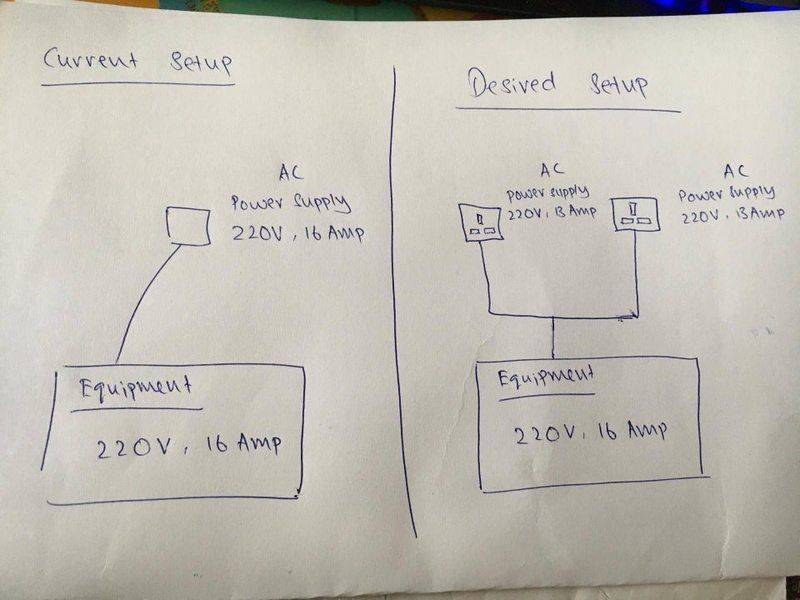 Current Setup
AC
Power Supply
220V, 16 Amp
Equipment
220V, 16 Amp
Desired Setup
AC
Power Supply
220V, 13 Amp
AC
Power Supply
220V, 13 Amp
Equipment
220V, 16 Amp